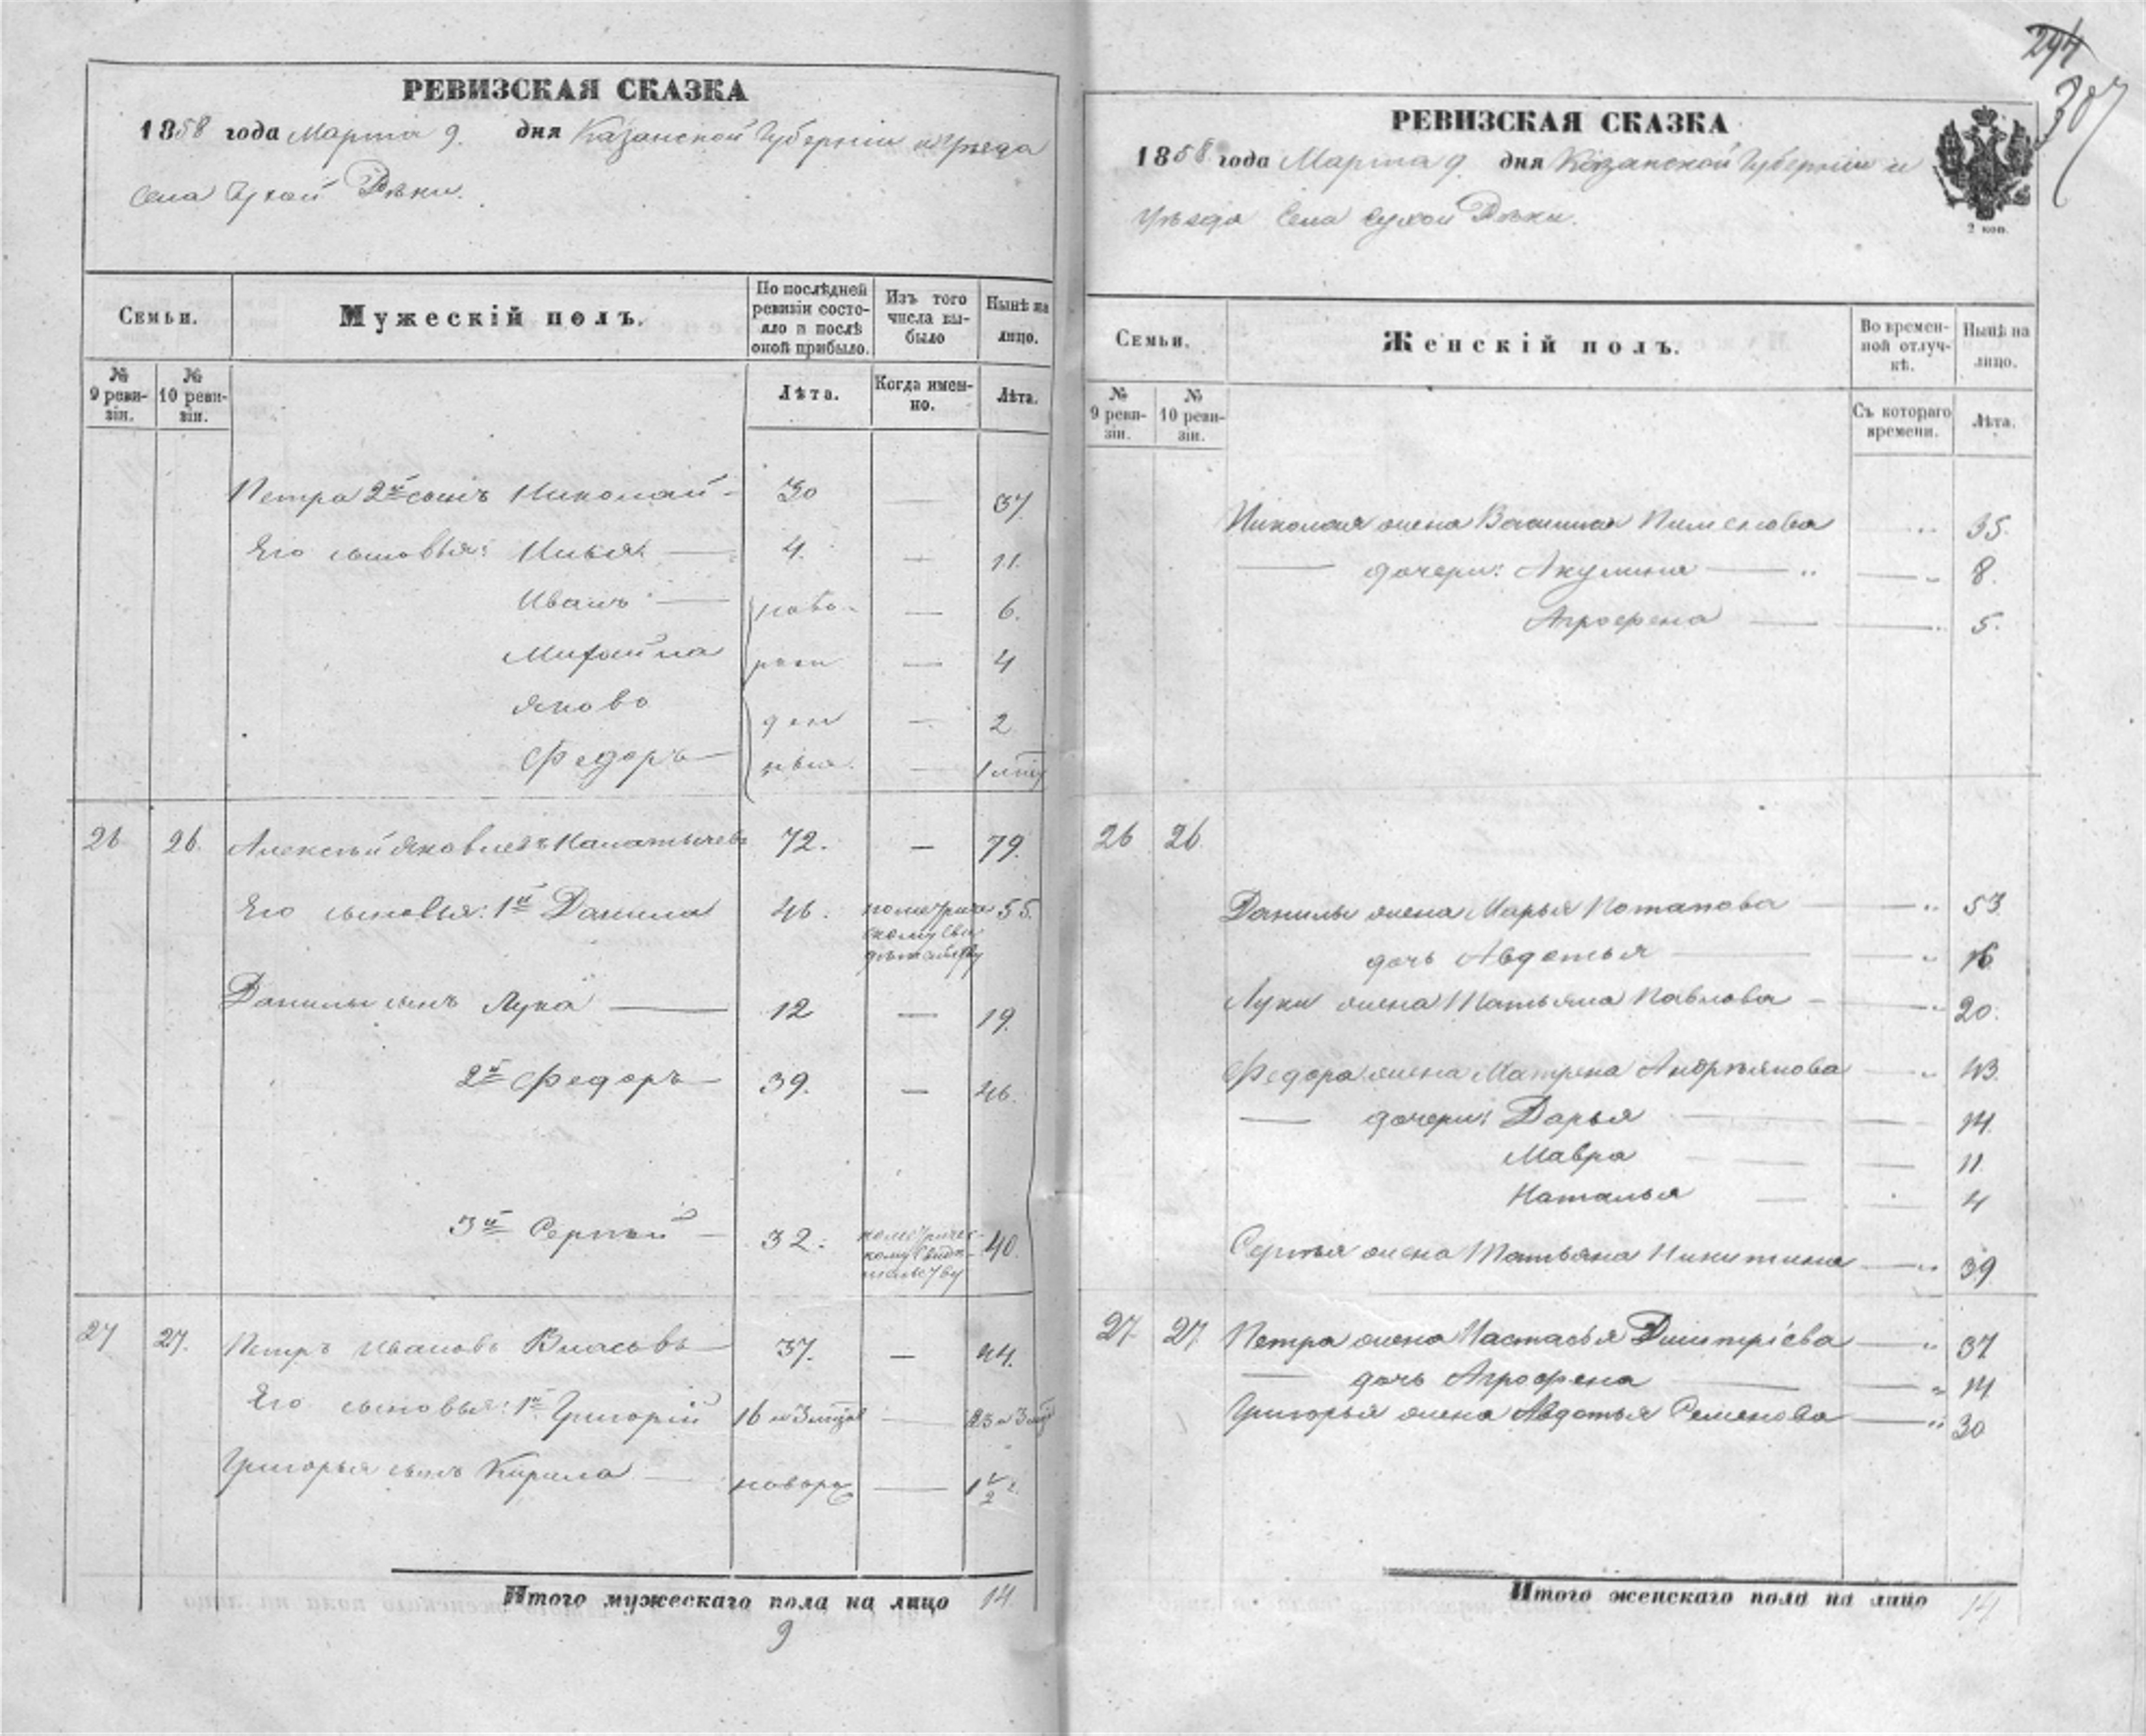 РЕВИЗСКАЯ СКАЗКА
1858 года Марта 9. дня Казанской Губерніи и Уѣзда
Села Сухой Рѣки.
Семьи.
Мужескій полъ.
По послѣдней ревизіи состояло и послѣ оной прибыло.
Изъ того числа выбыло
Нынѣ на лицо.
№ 9 ревизіи.
№ 10 ревизіи.
Лѣта.
Когда именно.
Лѣта.
Петра 2й сынъ Николай 30 — 37.
Его сыновья: Илья 4. — 11.
Иванъ — ново- — 6.
Михайла рож — 4
Яково ден — 2
Федоръ — ные. — 1
26 26. Алексѣй Яковлевъ Калатычевъ 72. — 79.
Его сыновья: 1й Данила 46. 55.
Данилы сынъ Лука — 12 — 19.
2й Федоръ — 39. — 46.
3й Сергѣй — 32. 40.
27 27. Петръ Ивановъ Власовъ — 37. — 44.
Его сыновья: 1й Григорій 16 и 3 — 23 и 3
Григорья сынъ Кирила — новорож — 1 1/2
Итого мужескаго пола на лицо 14
9
294
307
РЕВИЗСКАЯ СКАЗКА
1858 года Марта 9. дня Казанской Губерніи и
Уѣзда Села Сухой Рѣки.
2 коп.
Семьи.
Женскій полъ.
Во временной отлучкѣ.
Нынѣ на лицо.
№ 9 ревизіи.
№ 10 ревизіи.
Съ котораго времени.
Лѣта.
Николая жена Василиса Пименова 35.
— дочери: Акулина — 8.
Агрофена — 5.
26 26
Данилы жена Марья Потапова — 53
дочь Авдотья — 16
Луки жена Татьяна Павлова — 20.
Федора жена Матрена Андреянова — 43.
— дочери: Дарья — 14.
Мавра — 11
Наталья — 4
Сергѣя жена Татьяна Никитина — 39
27 27 Петра жена Настасья Дмитріева — 37
— дочь Агрофена — 14
Григорья жена Авдотья Семенова — 30
Итого женскаго пола на лицо 14